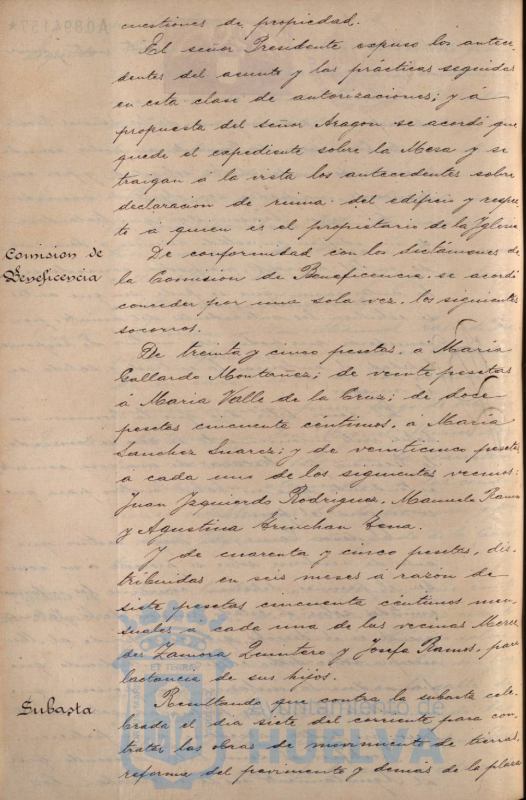 cuestiones de propiedad.
El señor Presidente expuso los antece-
dentes del asunto y las prácticas seguidas
en esta clase de autorizaciones; y á
propuesta del señor Aragon se acordó que
quede el expediente sobre la Mesa y se
traigan á la vista los antecedentes sobre
declaracion de ruina del edificio y respec
to á quien es el propietario de la Iglesia
Comision de
Beneficencia
De conformidad con los dictámenes de
la Comision de Beneficencia se acordó
conceder por una sola vez, los siguientes
socorros.
De treinta y cinco pesetas, á María
Gallardo Montañez; de veinte pesetas
á Maria Valle de la Cruz; de doce
pesetas cincuenta céntimos, a María
Sanchez Suarez; y de veinticinco pesetas
á cada uno de los siguientes vecinos:
Juan Izquierdo Rodriguez, Manuela Ramos
y Agustina
Y de cuarenta y cinco pesetas, dis-
tribuidas en seis meses á razón de
siete pesetas cincuenta céntimos men-
suales á cada una de las vecinas Merce
des Zamora Quintero y Josefa Ramos, para
lactancia de sus hijos.
Subasta
Resultando por contra la subasta cele-
brada el dia siete del corriente para con-
tratar las obras de movimiento de tierras,
reforma del pavimento y demás de la plaza
A0894157*
Ayuntamiento de
HUELVA